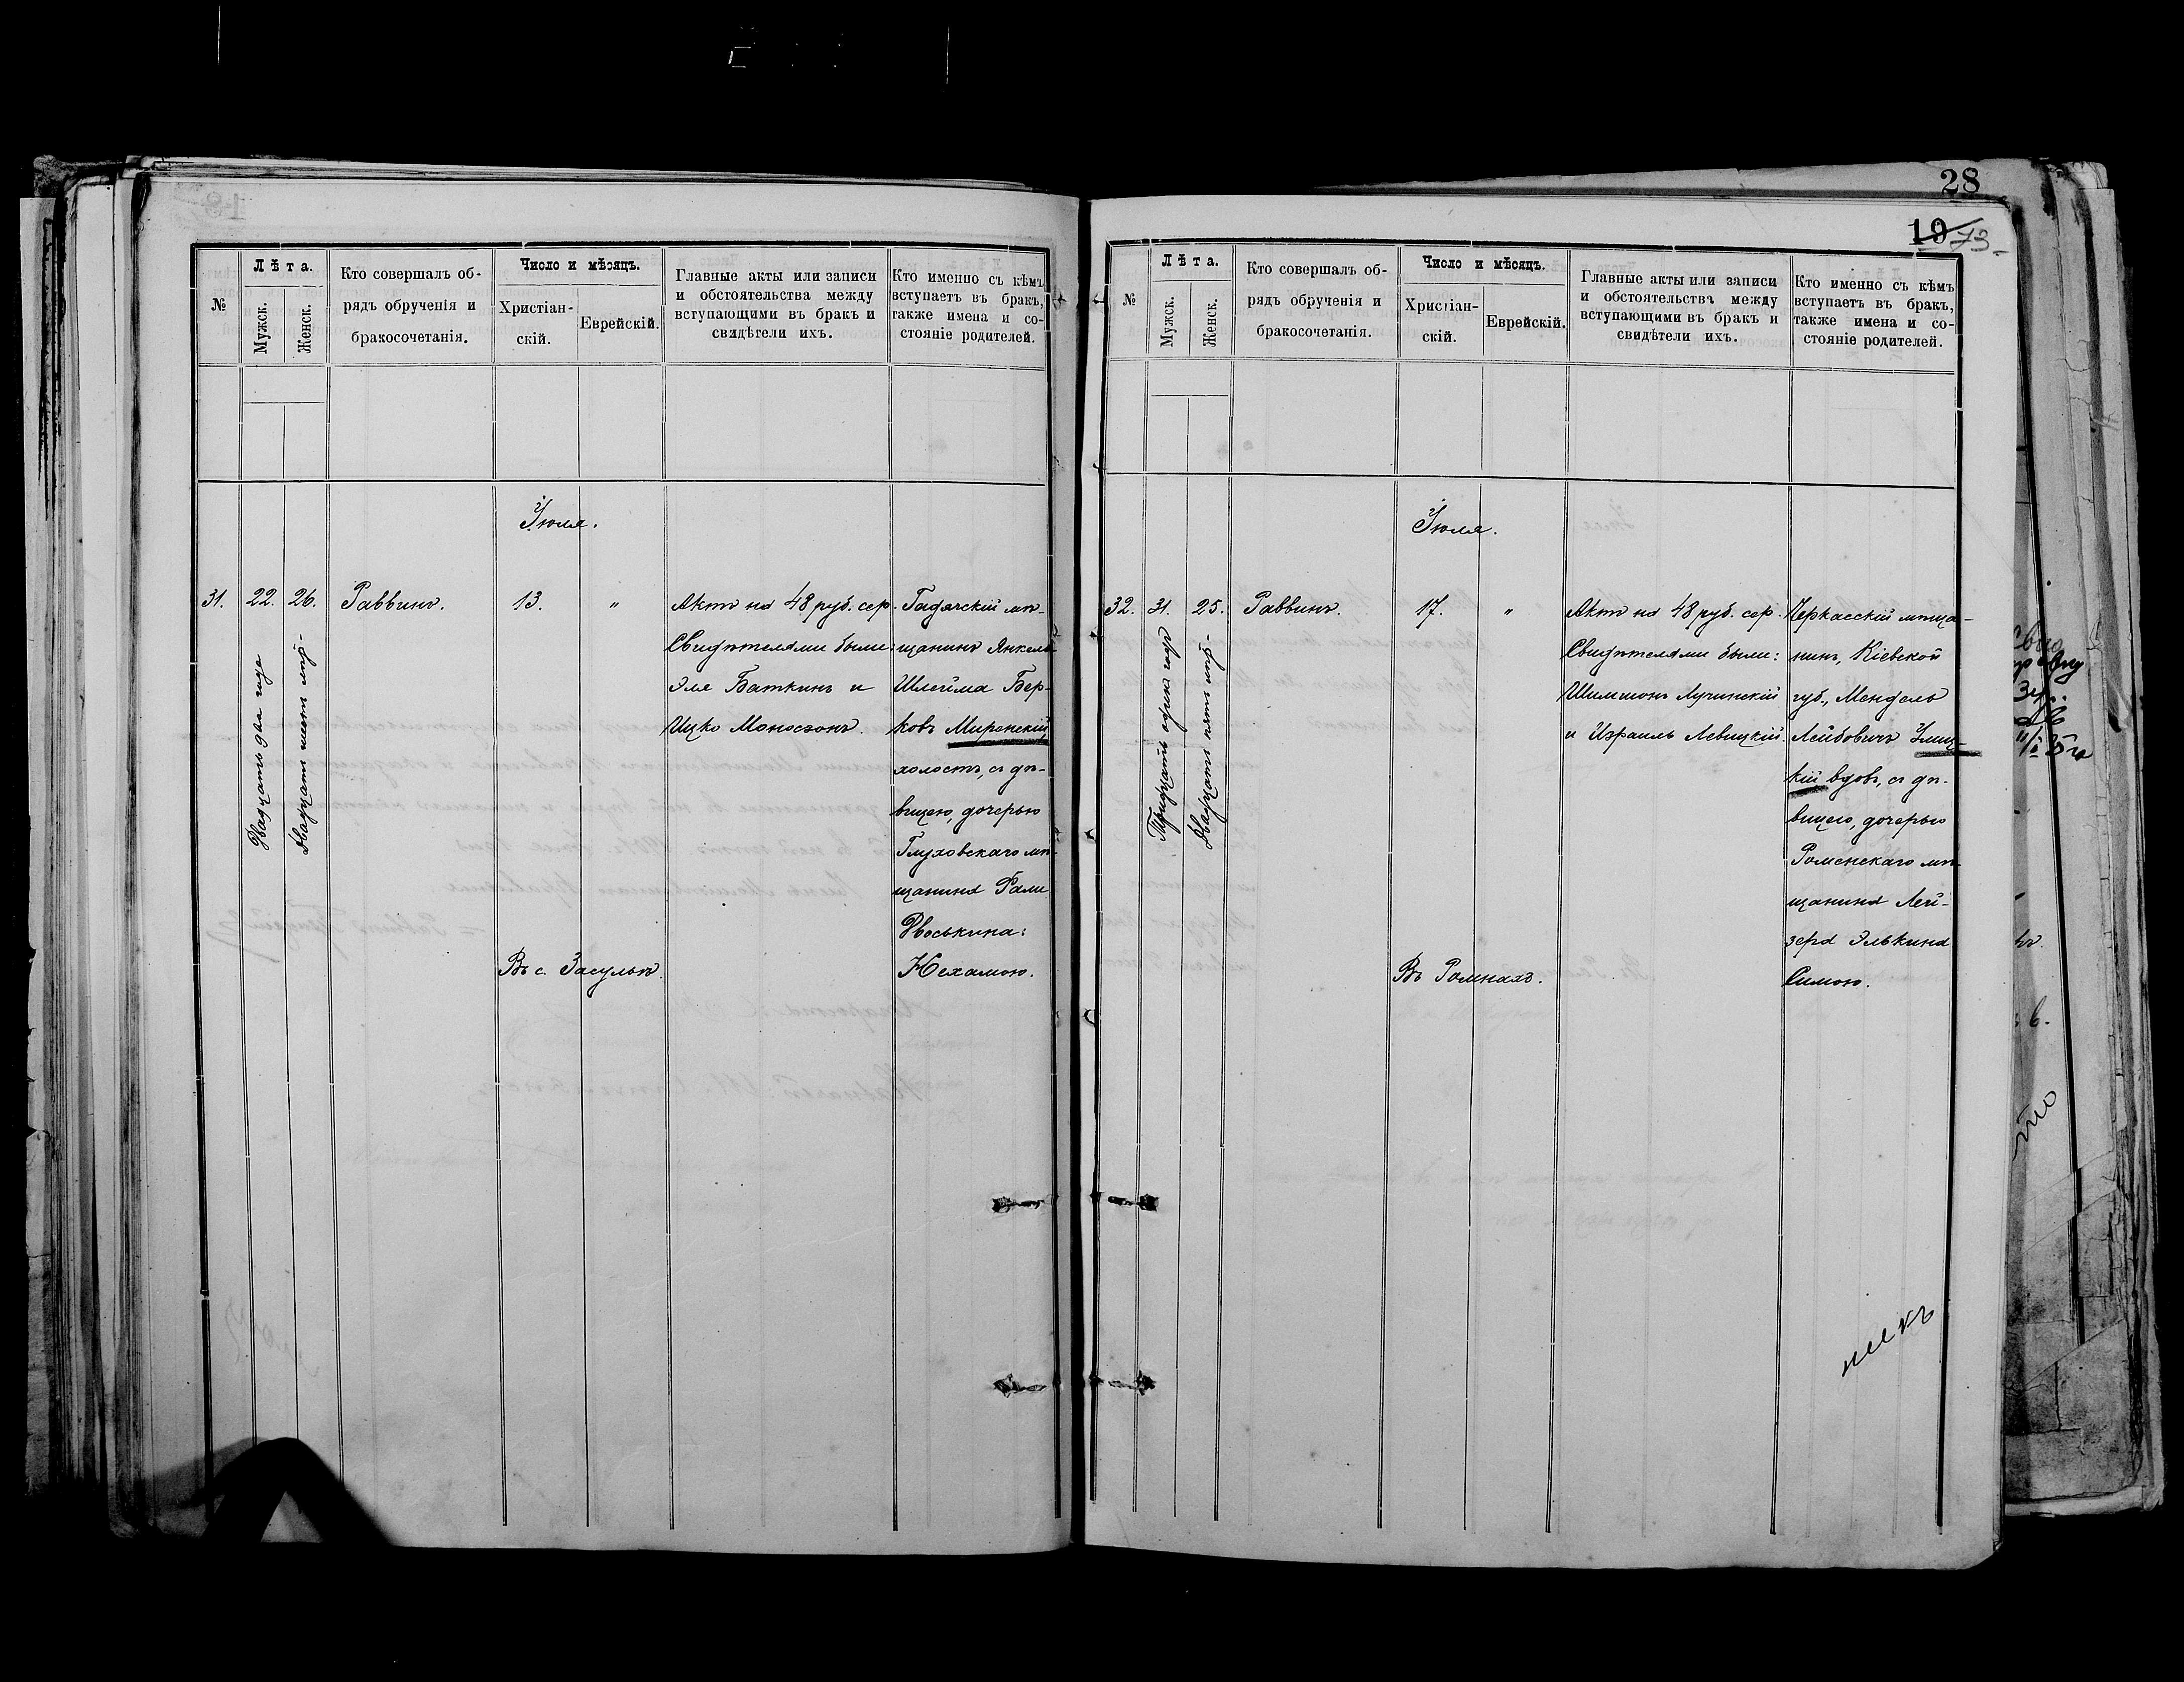 28
19
73
№
Лѣта.
Мужск.
Женск.
Кто совершалъ об-
рядъ обрученія и
бракосочетанія.
Число и мѣсяцъ.
Христіан-
скій.
Еврейскій.
Главные акты или записи
и обстоятельства между
вступающими въ бракъ и
свидѣтели ихъ.
Кто именно съ кѣмъ
вступаетъ въ бракъ,
также имена и со-
стояніе родителей.
Іюля.
31.
22.
Двадцать два года
26.
Двадцать шесть лѣтъ
Раввинъ.
13.
"
Въ с. Засульѣ.
Актъ на 48 руб. сер.
Свидѣтелями были:
Эле Баткинъ и
Ицко Моносзонъ.
Гадячскій мѣ-
щанинъ Янкель
Шлейма Бер-
ковъ Миронскій
холостъ, съ дѣ-
вицею, дочерью
Глуховскаго мѣ-
щанина
Двоськина:
Нехамою.
№
Лѣта.
Мужск.
Женск.
Кто совершалъ об-
рядъ обрученія и
бракосочетанія.
Число и мѣсяцъ.
Христіан-
скій.
Еврейскій.
Главные акты или записи
и обстоятельства между
вступающими въ бракъ и
свидѣтели ихъ.
Кто именно съ кѣмъ
вступаетъ въ бракъ,
также имена и со-
стояніе родителей.
Іюля.
32.
31.
Тридцать одинъ годъ
25.
Двадцать пять лѣтъ
Раввинъ.
17.
"
Въ Ромнахъ.
Актъ на 48 руб. сер.
Свидѣтелями были:
Шимшонъ Лучинскій
и Израиль Левицкій.
Черкасскій мѣща-
нинъ, Кіевской
губ., Мендель
Лейбовичъ
кій вдовъ, съ дѣ-
вицею, дочерью
Роменскаго мѣ-
щанина Лей-
зера Элькина
Симою.